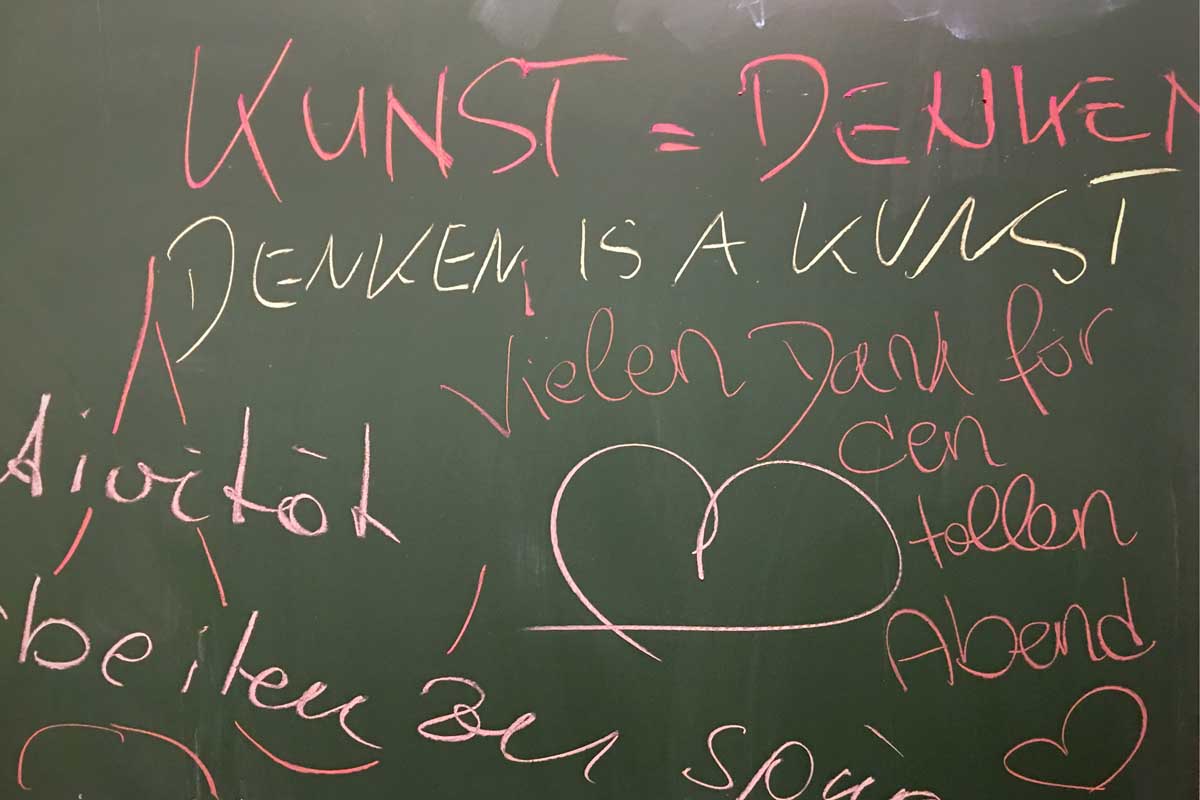 KUNST = DENKEN
DENKEN IS A KUNST
Vielen Dank für
den
tollen
Abend
ivität
beiten zu